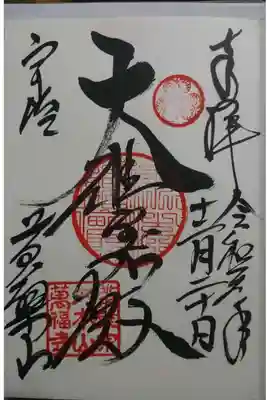 奉拝
令和元年
十二月二十日
大雄寳殿
宇治
黄檗山
大本山
萬福寺